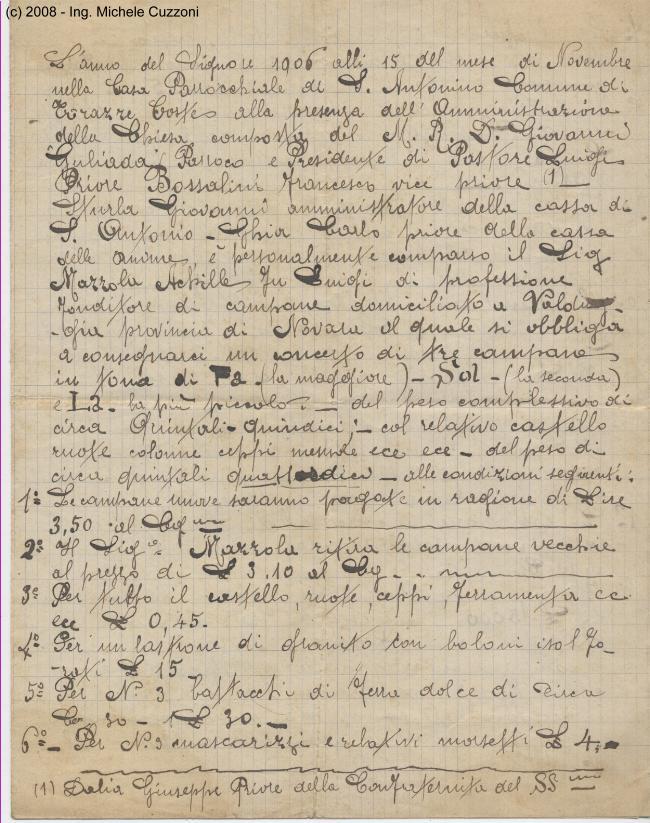 (c) 2008 - Ing. Michele Cuzzoni
L'anno del Signore 1906 alli 15 del mese di Novembre
nella Casa Parrocchiale di S. Antonino Comune di
Torazze Coste alla presenza dell'Amministrazione
della Chiesa composta del M. R. D. Giovanni
Guliada Parroco e Presidente di Pastore Luigi
Priore Bossalini Francesco vice priore (1)
Sturla Giovanni amministratore della cassa di
S. Antonio - Ghia Carlo priore della cassa
delle anime, è personalmente comparso il Sig
Mazzola Achille fu Luigi di professione
fonditore di campane domiciliato a Valdug
-gia provincia di Novara il quale si obbliga
a consegnarci un concerto di tre campane
in tono di Fa - (la maggiore) - Sol - (la seconda)
e La - la più piccola: - del peso complessivo di
circa Quintali - quindici; - col relativo castello
ruote colonne ceppi mensole ecc ecc - del peso di
circa quintali quattordici - alle condizioni seguenti:
1º Le campane nuove saranno pagate in ragione di Lire
3,50 al Cg
2º Il Sigº Mazzola ritira le campane vecchie
al prezzo di £ 3,10 al Cg.
3º Per tutto il castello, ruote, ceppi, ferramenta ec
ecc £ 0,45.
4º Per un lastrone di granito con boloni isol fo-
-rati £ 15
5º Per Nº 3 battacchi di ferro dolce di circa
Cg. 30 - £ 30. -
6º - Per Nº 3 mascarizzi e relativi morsetti £ 4, -
(1) Dalia Giuseppe Priore della Confraternita del SS mo